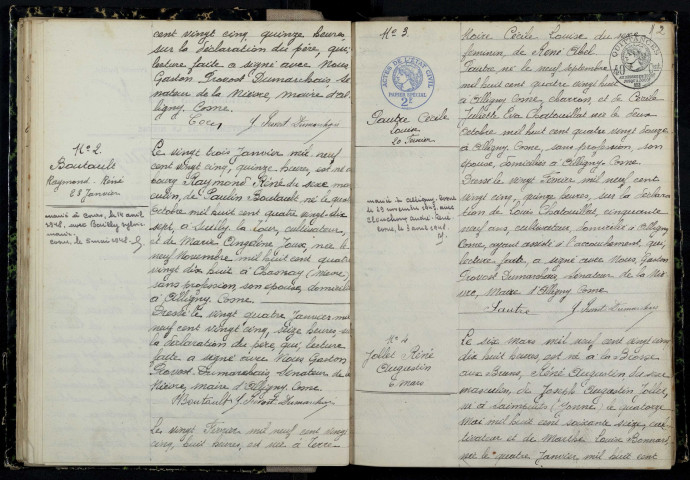 cent vingt cinq, quinze heures,
sur la déclaration du père, qui,
lecture faite a signé avec Nous
Gaston Provost Dumarchais, Sé-
nateur de la Nièvre, maire d'Al-
ligny Cosne.
G. Provost Dumarchais
N° 2.
Boutault
Raymond René
23 Janvier
marié à Cosne, le 14 avril
1948, avec
Cosne, le 5 mai 1948
Le vingt trois Janvier mil neuf
cent vingt cinq, quinze heures, est né au
bourg Raymond René du sexe mas-
culin, de Paulin Boutault, né le quatre
Octobre mil huit cent quatre vingt dix
sept, à Suilly la Tour, cultivateur,
et de Marie née le
neuf Novembre mil huit cent quatre
vingt dix huit à Chasnay (Nièvre)
sans profession, son épouse, domiciliés
à Alligny Cosne.
Dressé le vingt quatre Janvier mil
neuf cent vingt cinq, seize heures, sur
la déclaration du père qui, lecture
faite a signé avec Nous Gaston
Provost Dumarchais Sénateur de la
Nièvre, maire d'Alligny Cosne.
Boutault G. Provost Dumarchais
Le vingt Février mil neuf cent vingt
cinq, huit heures, est née à Terre
2
N° 3
ACTES DE L'ÉTAT CIVIL
PAPIER SPÉCIAL
2F
Pautre Cécile
Louise
20 Février
mariée à Alligny-Cosne
le 29 novembre 1947, avec
André René
Cosne, le 3 avril 1948
Noire Cécile Louise du sexe
féminin, de René Abel
Pautre né le neuf Septembre
mil huit cent quatre vingt huit
à Alligny Cosne, charron, et de Cécile
Juliette Eva Chatouillat née le deux
Octobre mil huit cent quatre vingt douze
à Alligny Cosne, sans profession, son
épouse, domiciliés à Alligny Cosne.
Dressé le vingt Février mil neuf cent
vingt cinq, quinze heures, sur la déclara-
tion de Louis Chatouillat, cinquante
neuf ans, cultivateur, domicilié à Alligny
Cosne, ayant assisté à l'accouchement, qui,
lecture faite, a signé avec Nous, Gaston
Provost Dumarchais, Sénateur de la Niè-
vre, Maire d'Alligny Cosne.
G. Provost Dumarchais
N° 4
Jollet René
Augustin
6 Mars
Le six mars mil neuf cent vingt cinq
dix huit heures, est né à la Brosse
aux Brans, René Augustin du sexe
masculin, de Joseph Augustin Jollet,
né à (Yonne) le quatorze
Mai mil huit cent soixante seize, cul-
tivateur et de Marthe Louise Bonnard,
née le quatre Janvier, mil huit cent